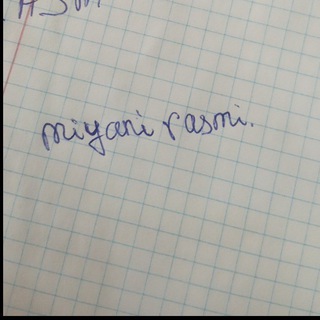 miyani rasmi.